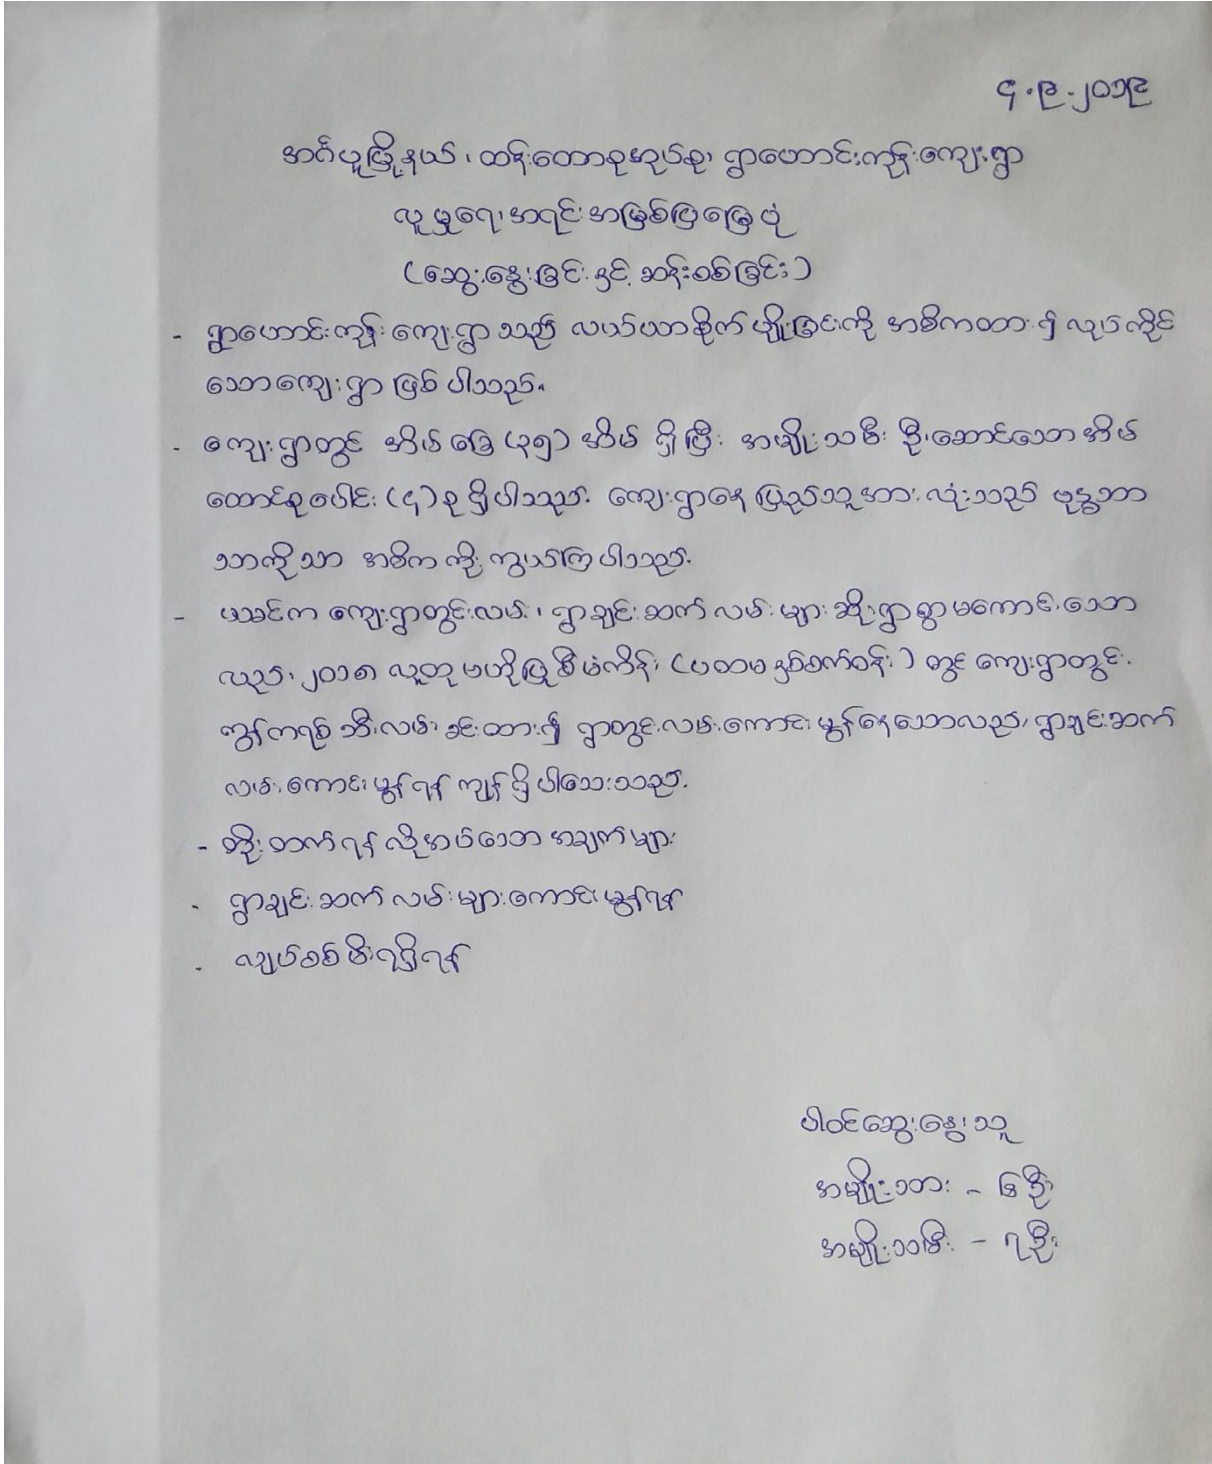 ၄.၉.၂၀၁၉
အင်္ဂပူမြို့နယ်၊ ထန်းတောစုအုပ်စု၊ ရွာဟောင်းကုန်းကျေးရွာ
လူမှုရေးအရင်းအမြစ်ပြမြေပုံ
(ဆွေးနွေးခြင်းနှင့် ဆန်းစစ်ခြင်း)
- ရွာဟောင်းကုန်းကျေးရွာသည် လယ်ယာစိုက်ပျိုးခြင်းကို အဓိကထား၍ လုပ်ကိုင်
သောကျေးရွာ ဖြစ်ပါသည်။
- ကျေးရွာတွင် အိမ်ခြေ (၃၅) အိမ် ရှိပြီး အမျိုးသမီး ဦးဆောင်သောအိမ်
ထောင်စုပေါင်း (၄) စု ရှိပါသည်။ ကျေးရွာနေ ပြည်သူအားလုံးသည် ဗုဒ္ဓဘာ
သာကိုသာ အဓိက ကိုးကွယ်ကြပါသည်။
- ယခင်က ကျေးရွာတွင်းလမ်း၊ ရွာချင်းဆက်လမ်းများ ဆိုးရွာစွာမကောင်းသော
လည်း ၂၀၁၈ လူထုဗဟိုပြုစီမံကိန်း (ပထမနှစ်စက်ဝန်း) တွင် ကျေးရွာတွင်း
ကွန်ကရစ် သီးလမ်း ခင်းထား၍ ရွာတွင်းလမ်းကောင်းမွန်နေသောလည်း ရွာချင်းဆက်
လမ်းကောင်းမွန်ရန် ကျန်ရှိပါသေးသည်။
- တိုးတက်ရန် လိုအပ်သောအချက်များ
- ရွာချင်းဆက်လမ်းများကောင်းမွန်ရန်
- လျှပ်စစ်မီးရရှိရန်
ပါဝင်ဆွေးနွေးသူ
အမျိုးသား - ၆ဦး
အမျိုးသမီး - ၇ဦး